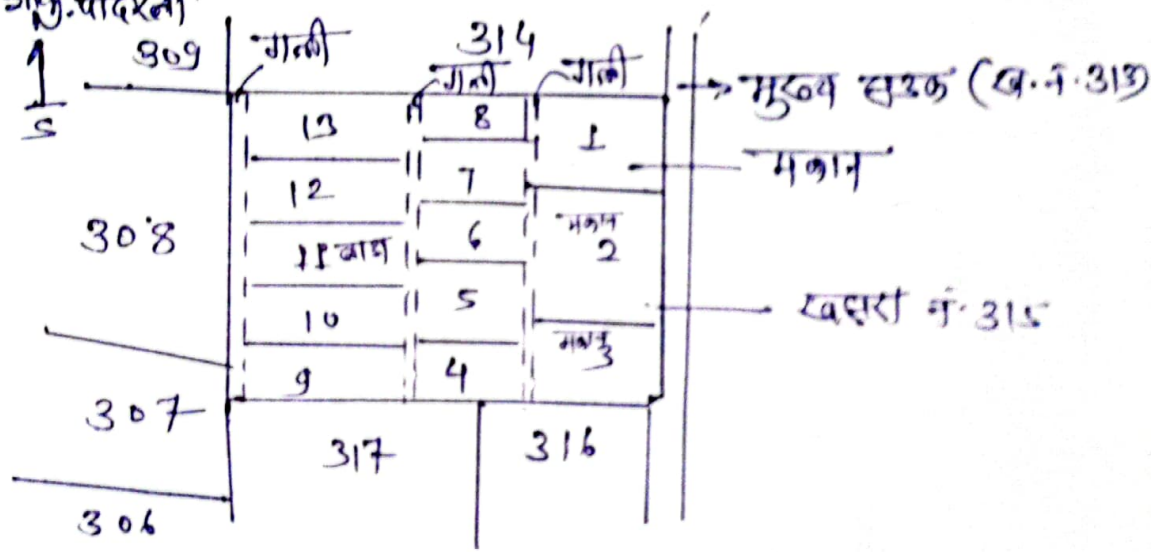 309 गली 314
1 गली गली
S → मुख्य सड़क (ख.नं.313)
13 8 1
मकान
12 7
308 मकान
11 बाडा 6 2
5 खसरा नं. 315
10 मकान
3
9 4
307
317 316
306